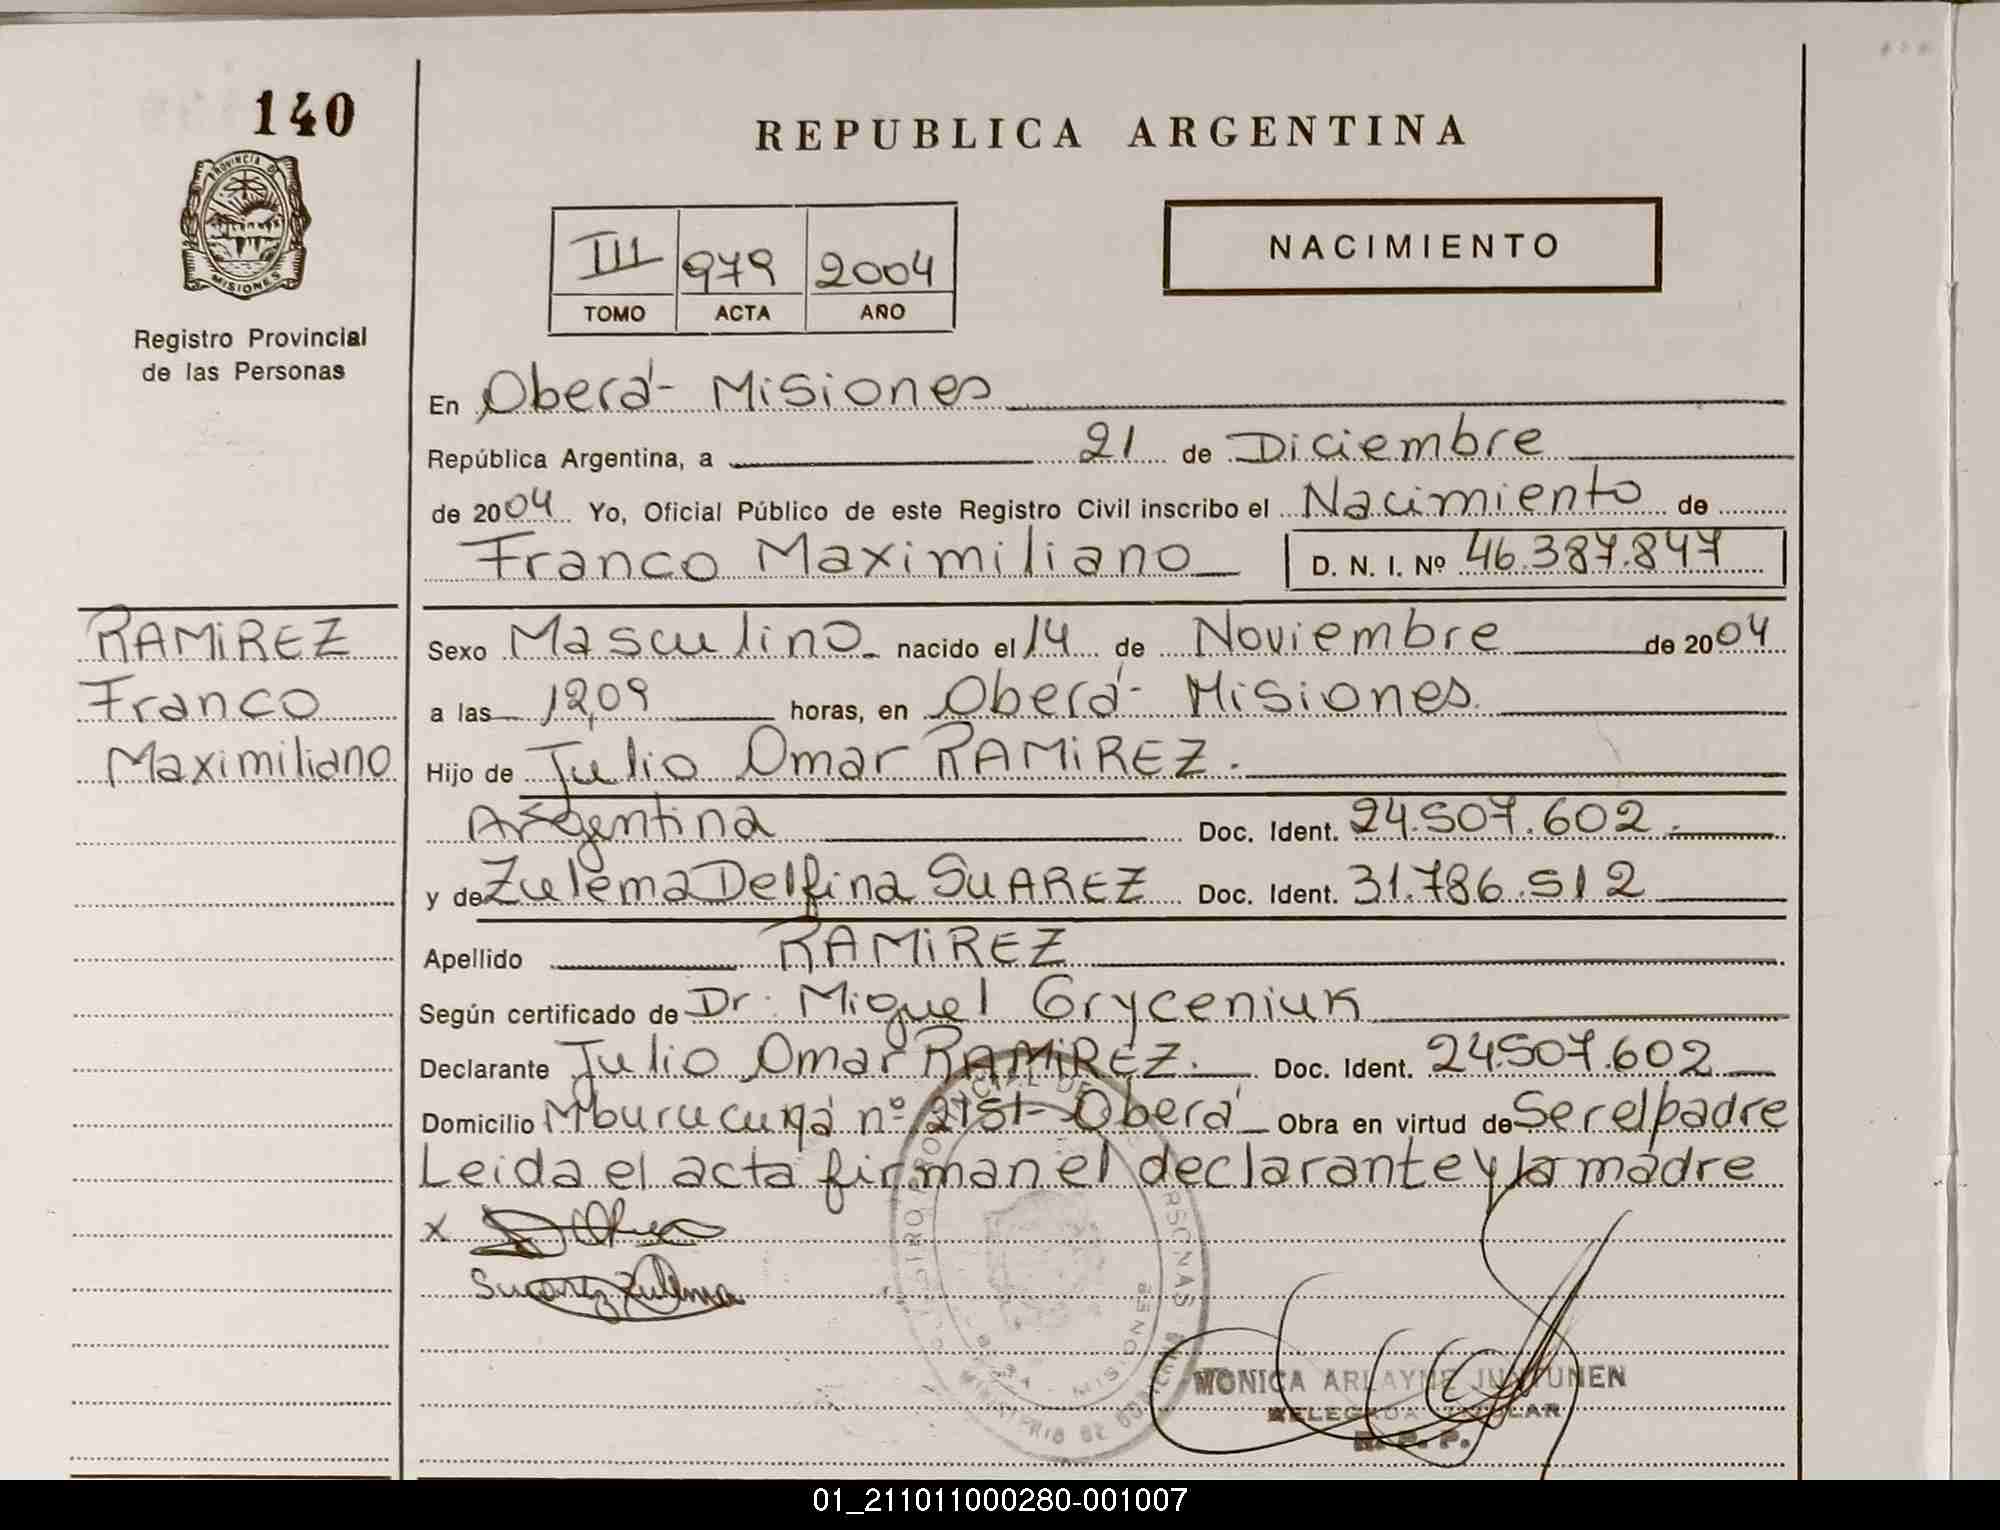 140
PROVINCIA DE
MISIONES
Registro Provincial
de las Personas
REPUBLICA ARGENTINA
III 979 2004
TOMO ACTA AÑO
NACIMIENTO
En Oberá - Misiones
República Argentina, a 21 de Diciembre
de 2004 Yo, Oficial Público de este Registro Civil inscribo el Nacimiento de
Franco Maximiliano D. N. I. Nº 46.387.847
RAMIREZ
Franco
Maximiliano
Sexo Masculino nacido el 14 de Noviembre de 2004
a las 12,09 horas, en Oberá - Misiones.
Hijo de Julio Omar RAMIREZ.
Argentina Doc. Ident. 24.507.602.
y de Zulema Delfina SUAREZ Doc. Ident. 31.786.512
Apellido RAMIREZ
Según certificado de Dr. Miguel Gryceniuk
Declarante Julio Omar RAMIREZ. Doc. Ident. 24.507.602
Domicilio Mburucuyá nº 2151 - Oberá Obra en virtud de Ser el padre
Leida el acta firman el declarante y la madre
x
Suarez Zulema
MONICA ARLAYNE JUNTUNEN
DELEGADA TITULAR
R. P. P.
01_211011000280-001007